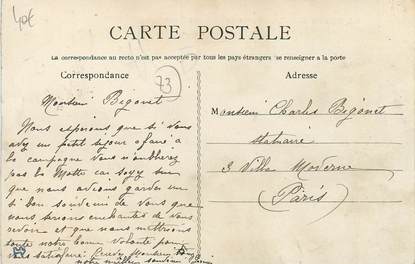 40€
CARTE POSTALE
La correspondance au recto n'est pas acceptée par tous les pays étrangers se renseigner a la porte
Correspondance
Adresse
73
Monsieur Bigonet
Nous esperons que si vous
avez un petit sejour a faire à
la campagne vous n'oublierez
pas la Motte car soyez sur
que nous avions garder un
si bon souvenir de vous que
nous serions enchantés de vous
revoir et que nous mettrons
toute notre bonne volonté pour
vous satisfaire. Monsieur
notre meilleur souvenir
Monsieur Charles Bigonet
statuaire
3 Villa Moderne
(Paris)